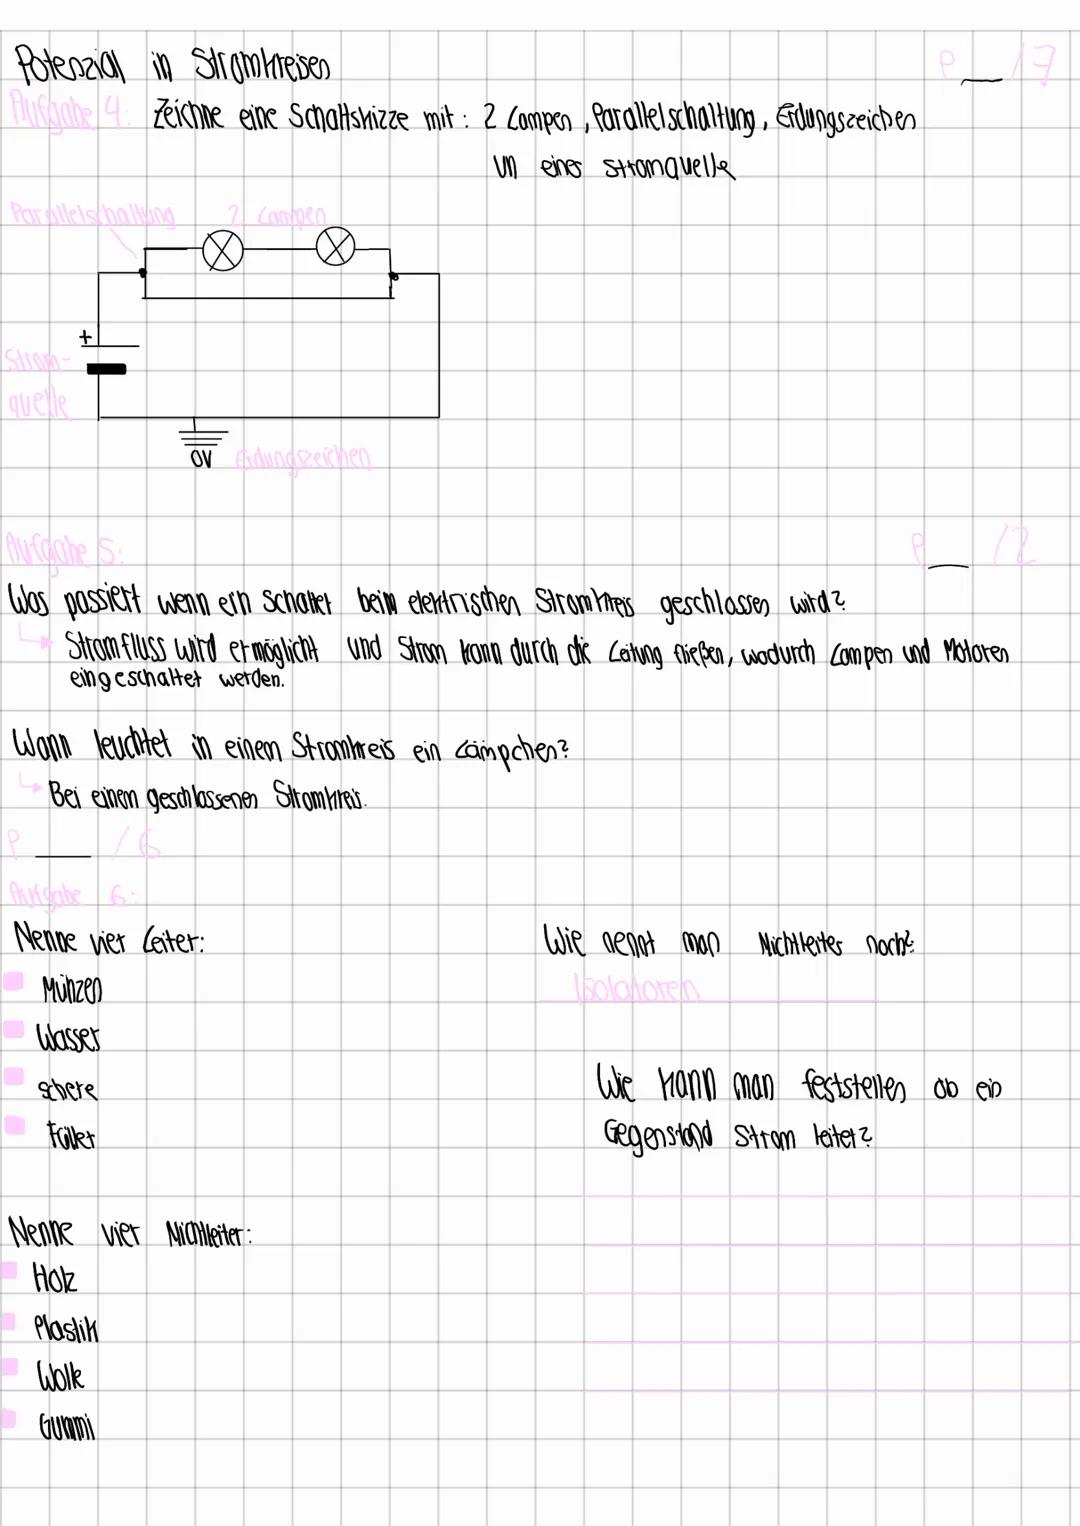 Potenzial in Stromkreisen
P __ /7
Aufgabe 4: Zeichne eine Schaltskizze mit: 2 Lampen, Parallelschaltung, Erdungszeichen
un einer stromquelle
Parallelschaltung 2 Lampen
+
Strom-
quelle
0V Erdungszeichen
Aufgabe 5:
P __ /2
Was passiert wenn ein Schalter beim elektrischen Stromkreis geschlossen wird?
Stromfluss wird ermöglicht und Strom kann durch die Leitung fließen, wodurch Lampen und Motoren
eingeschaltet werden.
Wann leuchtet in einem Stromkreis ein Lämpchen?
Bei einem geschlossenen Stromkreis.
P ___ /6
Aufgabe 6:
Nenne vier Leiter:
Münzen
Wasser
schere
Füller
Wie nennt man Nichtleiter noch?
Isolatoren
Wie kann man feststellen ob ein
Gegenstand Strom leitet?
Nenne vier Nichtleiter:
Holz
Plastik
Wolle
Gummi